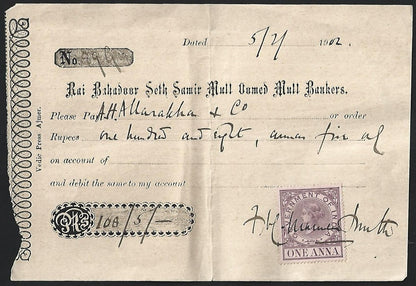 Dated 5/2/ 1902.
No.
Rai Bahadoor Seth Samir Mull Oomed Mull Bankers.
Please Pay A H Allarakhan & Co or order
Rupees one hundred and eight, annas five only
on account of
and debit the same to my account
Rs 108/5/-
GOVERNMENT OF INDIA
ONE ANNA
Vedic Press Ajmer.